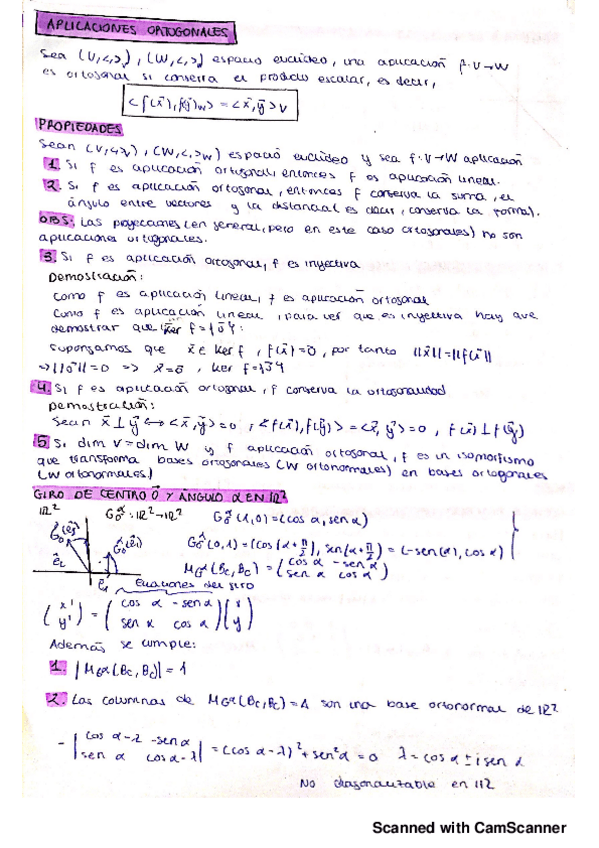 APLICACIONES ORTOGONALES
Sea (V,<,>), (W,<,>) espacio euclídeo, una aplicación f:V→W
es ortogonal si conserva el producto escalar, es decir,
<f(x⃗),f(y⃗)>_W = <x⃗,y⃗>_V
PROPIEDADES
Sean (V,<,>_V), (W,<,>_W) espacio euclídeo y sea f:V→W aplicación
1. Si f es aplicación ortogonal, entonces f es aplicación lineal.
2. Si f es aplicación ortogonal, entonces f conserva la suma, el
ángulo entre vectores y la distancia (es decir, conserva la forma).
OBS: Las proyecciones (en general, pero en este caso ortogonales) no son
aplicaciones ortogonales.
3. Si f es aplicación ortogonal, f es inyectiva
Demostración:
Como f es aplicación lineal, f es aplicación ortogonal
Como f es aplicación lineal, para ver que es inyectiva hay que
demostrar que Ker f = {0⃗}:
Supongamos que x⃗ ∈ Ker f, f(x⃗)=0, por tanto ||x⃗|| = ||f(x⃗)||
→ ||0⃗|| = 0 => x⃗ = 0⃗, Ker f = {0⃗}
4. Si f es aplicación ortogonal, f conserva la ortogonalidad
Demostración:
Sean x⃗ ⊥ y⃗ <-> <x⃗,y⃗> = 0, <f(x⃗),f(y⃗)> = <x⃗,y⃗> = 0, f(x⃗) ⊥ f(y⃗)
5. Si dim V = dim W y f aplicación ortogonal, f es un isomorfismo
que transforma bases ortogonales (W ortonormales) en bases ortogonales
(W ortonormales)
GIRO DE CENTRO 0⃗ Y ANGULO α EN IR²
IR² G₀^α : IR²→IR² G₀^α (1,0) = (cos α, sen α)
G₀^α(e₂) G₀^α(e₁) G₀^α (0,1) = (cos(α+π/2), sen(α+π/2)) = (-sen(α), cos α)
e₂ M_G^α(Bc,Bc) = (cos α -sen α
sen α cos α)
e₁ Ecuaciones del giro
(x' y') = (cos α -sen α
sen α cos α) (x y)
Además se cumple:
1. |M_G^α(Bc,Bc)| = 1
2. Las columnas de M_G^α(Bc,Bc) = A son una base ortonormal de IR²
- |cos α-λ -sen α
sen α cos α-λ| = (cos α-λ)² + sen² α = 0 λ = cos α ± i sen α
No diagonalizable en IR
Scanned with CamScanner